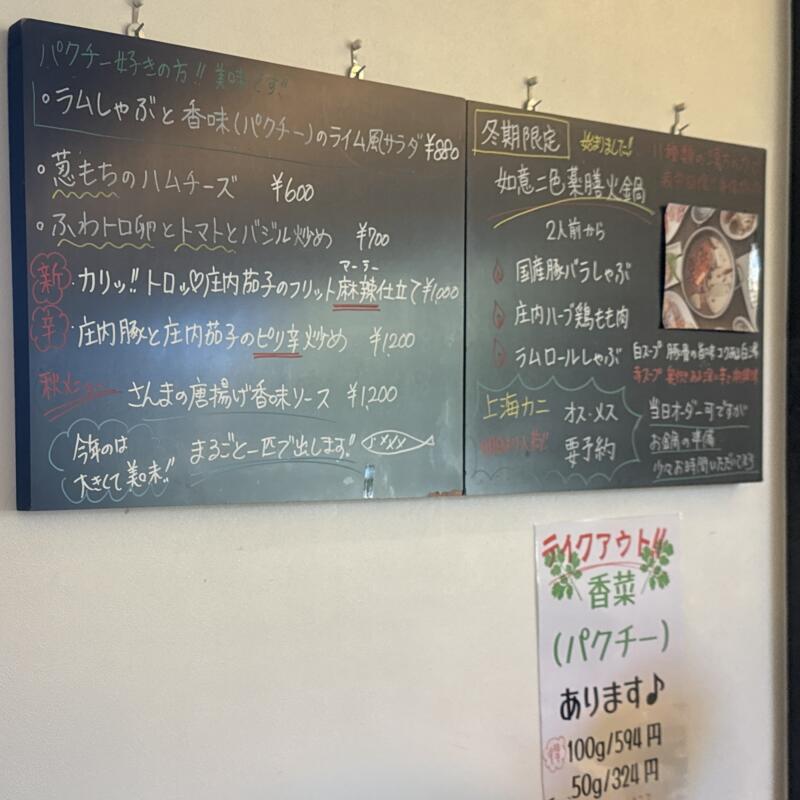 パクチー好きの方!! 美味です!!
・ラムしゃぶと香味(パクチー)のライム風サラダ ¥880
・葱もちのハムチーズ ¥600
・ふわトロ卵とトマトとバジル炒め ¥700
新・カリッ!!トロッ♡庄内茄子のフリット麻辣仕立て ¥1,000
マーラー
辛・庄内豚と庄内茄子のピリ辛炒め ¥1,200
秋メニュー さんまの唐揚げ香味ソース ¥1,200
今年のは
大きくて美味!!
まるごと一匹で出します!!
冬期限定 始りました!!
11種類の
如意二色薬膳火鍋
2人前から
国産豚バラしゃぶ
庄内ハーブ鶏もも肉
ラムロールしゃぶ
白スープ
赤スープ
上海カニ オス・メス
要予約
当日オーダー可ですが
お食鍋の準備
少々お時間いただいてます
テイクアウト!!
香菜
(パクチー)
あります♪
100g/594円
50g/324円